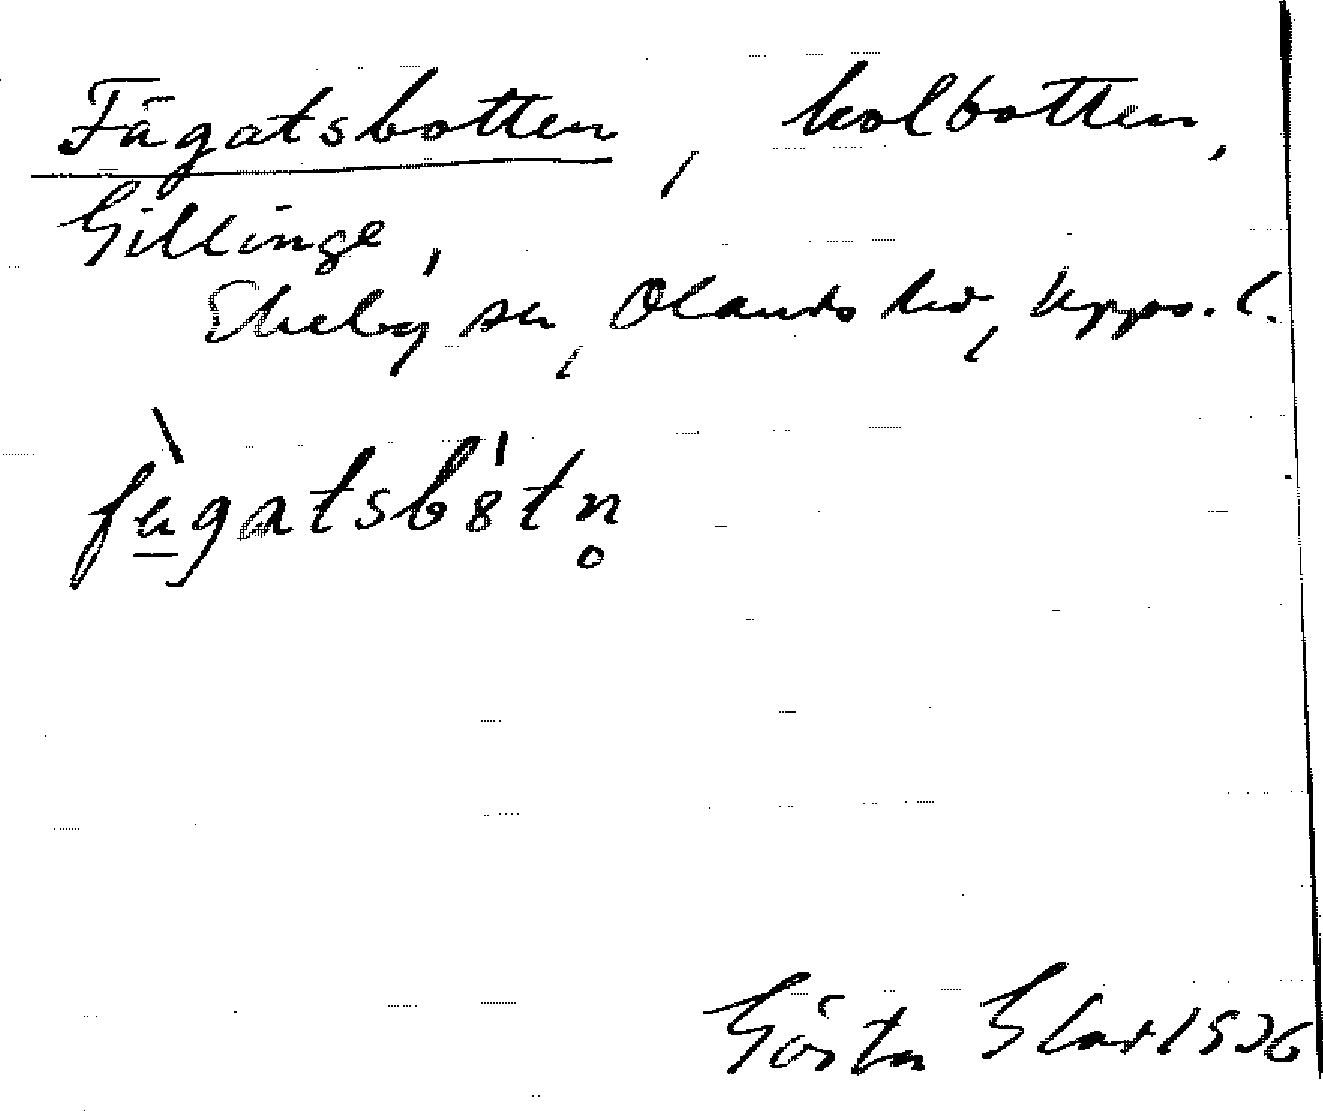 Fågatsbotten, kolbotten,
Gillinge,
Skeby sn, Olands hd, Upps. l.
fàgatsbötn̥
Gösta 1936